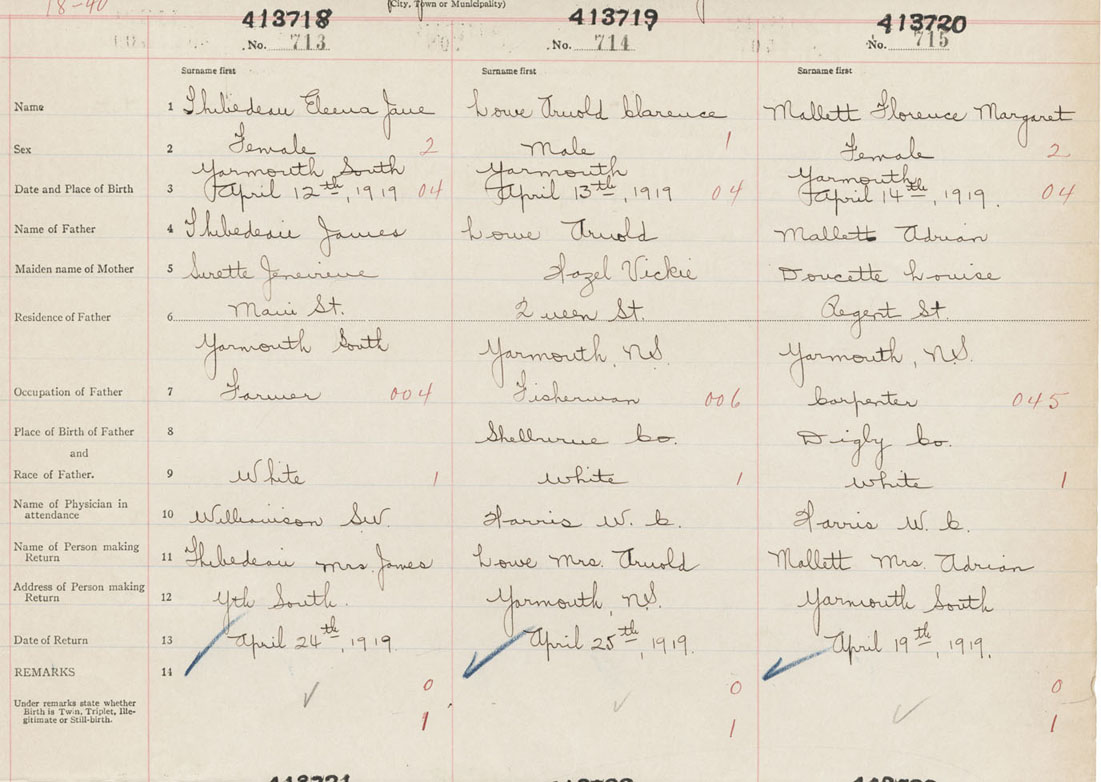 18-40
(City, Town or Municipality)
413718 413719 413720
No. 713 No. 714 No. 715
Surname first Surname first Surname first
Name 1 Thibedeau Eleena Jane Lowe Arnold Clarence Mallett Florence Margaret
Sex 2 Female 2 Male 1 Female 2
Yarmouth South Yarmouth Yarmouth
Date and Place of Birth 3 April 12th, 1919 04 April 13th, 1919 04 April 14th, 1919. 04
Name of Father 4 Thibedeau James Lowe Arnold Mallett Adrian
Maiden name of Mother 5 Surette Jenevieve Hazel Vickie Doucette Louise
Main St. Queen St. Regent St.
Residence of Father 6
Yarmouth South Yarmouth, N.S. Yarmouth, N.S.
Occupation of Father 7 Farmer 004 Fisherman 006 Carpenter 045
Place of Birth of Father 8 Shelburne Co. Digby Co.
and
Race of Father. 9 White 1 White 1 White 1
Name of Physician in
attendance 10 Williamson S.W. Harris W. C. Harris W. C.
Name of Person making
Return 11 Thibedeau Mrs. James Lowe Mrs. Arnold Mallett Mrs. Adrian
Address of Person making
Return 12 Yth South. Yarmouth, N.S. Yarmouth South
Date of Return 13 April 24th, 1919. April 25th, 1919. April 19th, 1919.
REMARKS 14
0 0 0
Under remarks state whether
Birth is Twin, Triplet, Ille-
gitimate or Still-birth. 1 1 1